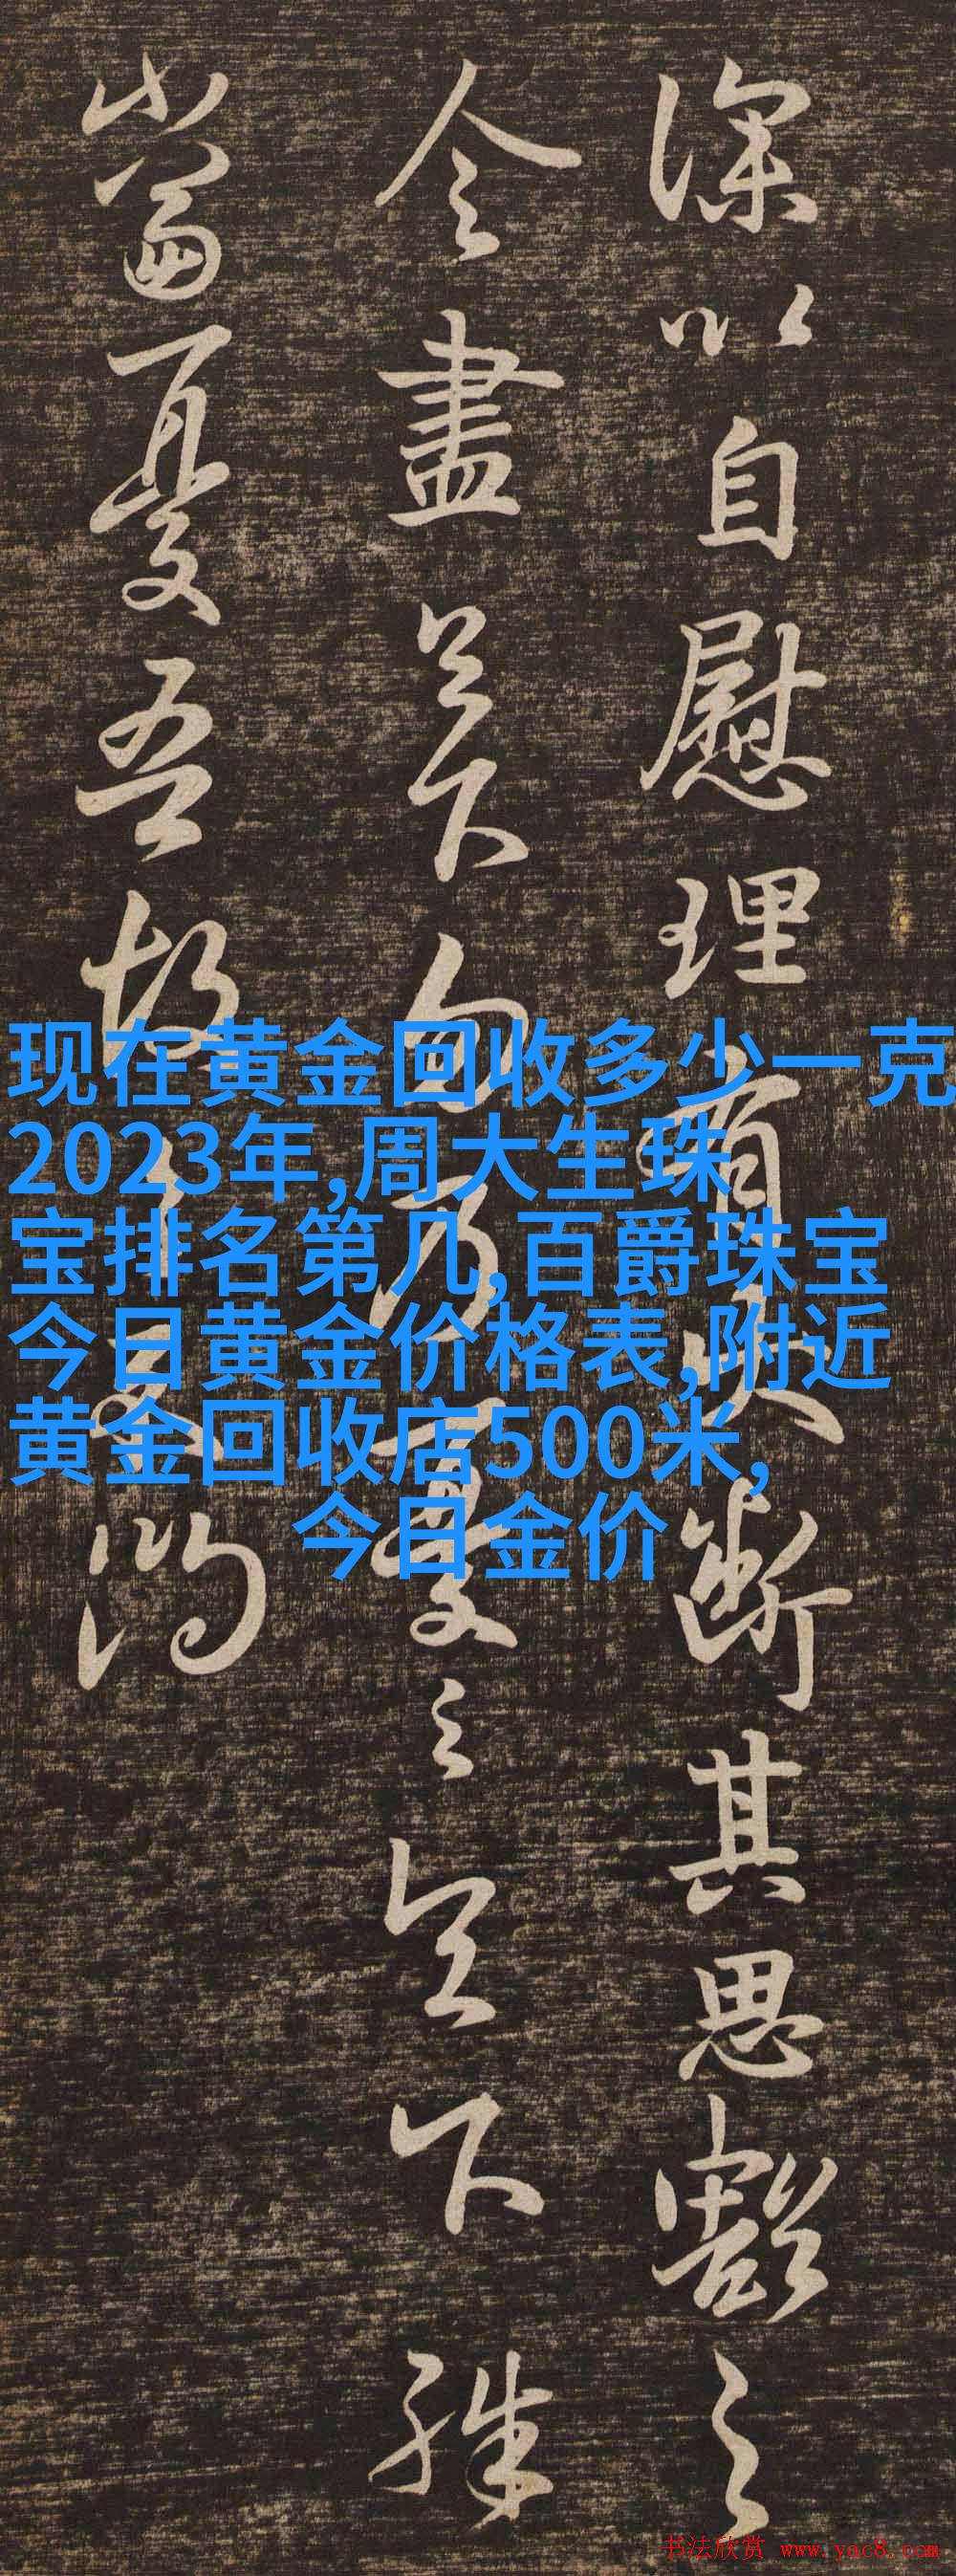 深以自慰理有大断其思豁之
令盡足下勿乃憂之足下殊
当憂吾故
现在黄金回收多少一克
2023年,周大生珠
宝排名第几,百爵珠宝
今日黄金价格表,附近
黄金回收店500米,
今日金价
书法欣赏 www.yac8.com